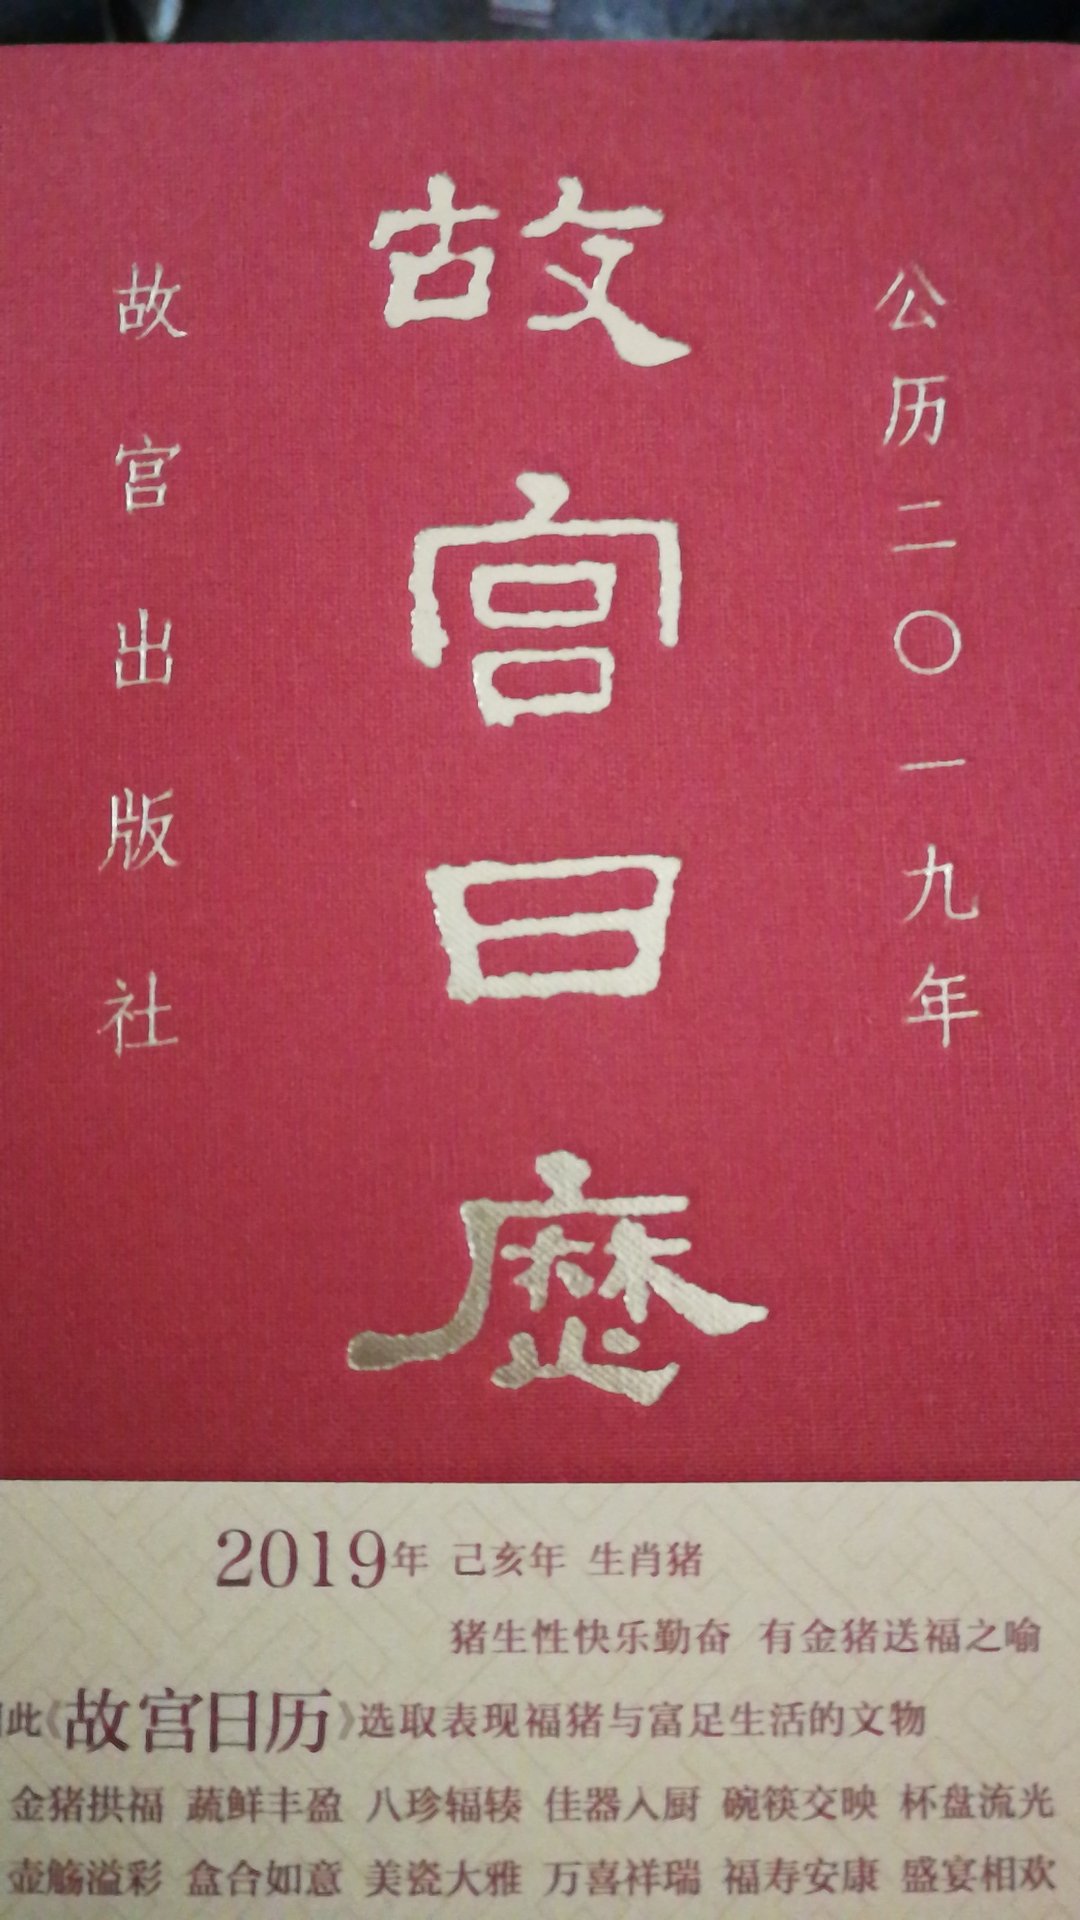 公历二〇一九年
故宫日歷
故宫出版社
2019年 己亥年 生肖猪
猪生性快乐勤奋 有金猪送福之喻
此《故宫日历》选取表现福猪与富足生活的文物
金猪拱福 蔬鲜丰盈 八珍辐辏 佳器入厨 碗筷交映 杯盘流光
壶觞溢彩 盒合如意 美瓷大雅 万喜祥瑞 福寿安康 盛宴相欢